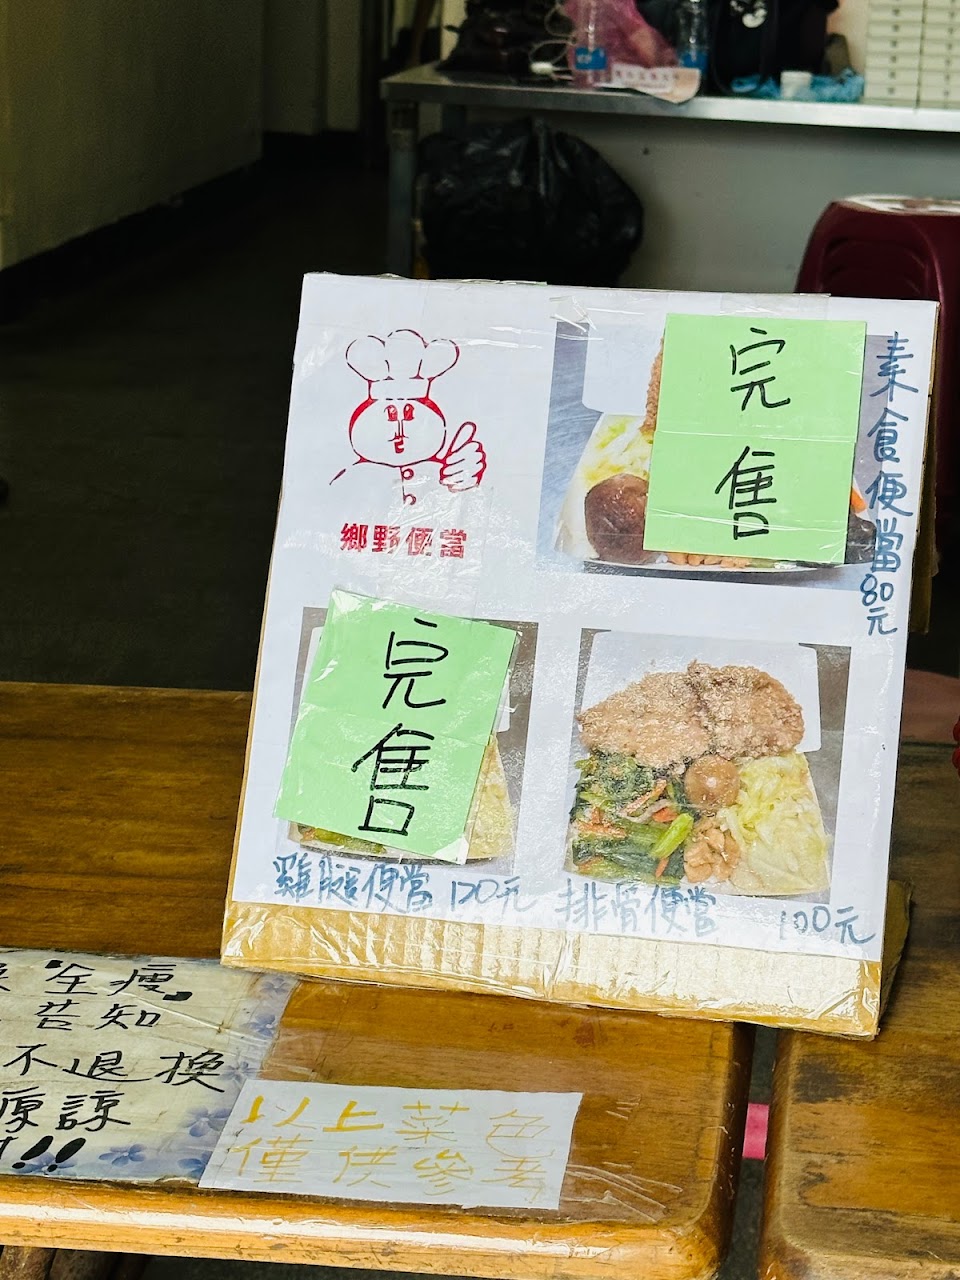 鄉野便當
完售
素食便當80元
完售
雞腿便當 120元
排骨便當 100元
全瘦
告知
不退換
原諒
!!
以上菜色
僅供參考